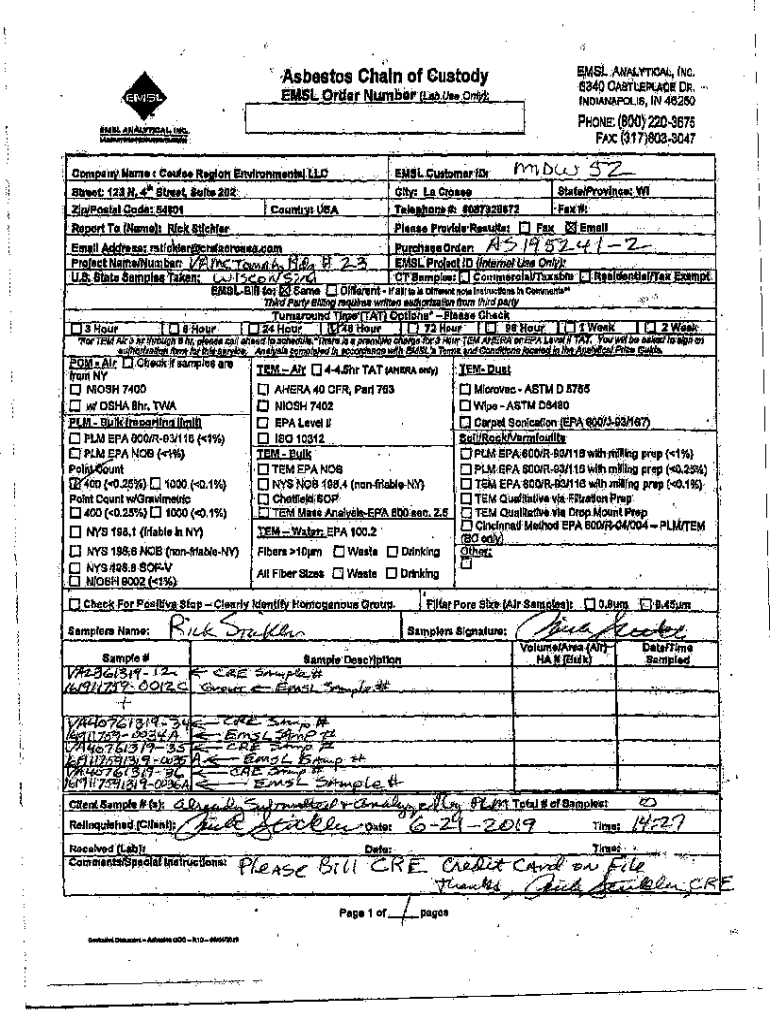 Asbestos Chain of Custody
EMSL Order Number (Lab Use Only):
EMSL
EMSL ANALYTICAL, INC.
EMSL ANALYTICAL, INC.
6340 CASTLEPLACE DR.
INDIANAPOLIS, IN 46250
PHONE: (800) 220-3675
FAX: (317)803-3047
Company Name : Coulee Region Environmental LLC
EMSL Customer ID: MDW 52
Street: 123 N. 4th Street, Suite 202
City: La Crosse
State/Province: WI
Zip/Postal Code: 54601
Country: USA
Telephone #: 6087928672
Fax #:
Report To (Name): Rick Stickler
Please Provide Results: Fax Email
Email Address:
Purchase Order: AS195241-2
Project Name/Number: VAMC Tomah, Bldg # 23
EMSL Project ID (Internal Use Only):
U.S. State Samples Taken: WISCONSIN
CT Samples: Commercial/Taxable Residential/Tax Exempt
EMSL-Bill to: Same Different - If Bill to is Different note instructions in Comments**
Third Party Billing requires written authorization from third party
Turnaround Time (TAT) Options* - Please Check
3 Hour 6 Hour 24 Hour 48 Hour 72 Hour 96 Hour 1 Week 2 Week
*For TEM Air 3 hr through 6 hr, please call ahead to schedule.*There is a premium charge for 3 Hour TEM AHERA or EPA Level II TAT. You will be asked to sign an
authorization form for this service. Analysis completed in accordance with EMSL's Terms and Conditions located in the Analytical Price Guide.
PCM - Air Check if samples are
from NY
NIOSH 7400
w/ OSHA 8hr. TWA
PLM - Bulk (reporting limit)
PLM EPA 600/R-93/116 (<1%)
PLM EPA NOB (<1%)
Point Count
400 (<0.25%) 1000 (<0.1%)
Point Count w/Gravimetric
400 (<0.25%) 1000 (<0.1%)
NYS 198.1 (friable in NY)
NYS 198.6 NOB (non-friable-NY)
NYS 198.8 SOF-V
NIOSH 9002 (<1%)
TEM - Air 4-4.5hr TAT (AHERA only)
AHERA 40 CFR, Part 763
NIOSH 7402
EPA Level II
ISO 10312
TEM - Bulk
TEM EPA NOB
NYS NOB 198.4 (non-friable-NY)
Chatfield SOP
TEM Mass Analysis-EPA 600 sec. 2.5
TEM - Water: EPA 100.2
Fibers >10µm Waste Drinking
All Fiber Sizes Waste Drinking
TEM- Dust
Microvac - ASTM D 5755
Wipe - ASTM D6480
Carpet Sonication (EPA 600/J-93/167)
Soil/Rock/Vermiculite
PLM EPA 600/R-93/116 with milling prep (<1%)
PLM EPA 600/R-93/116 with milling prep (<0.25%)
TEM EPA 600/R-93/116 with milling prep (<0.1%)
TEM Qualitative via Filtration Prep
TEM Qualitative via Drop Mount Prep
Cincinnati Method EPA 600/R-04/004 – PLM/TEM
(BC only)
Other:
Check For Positive Stop – Clearly Identify Homogenous Group
Filter Pore Size (Air Samples): 0.8µm 0.45µm
Samplers Name: Rick Stickler
Samplers Signature: Rick Stickler
Sample # Sample Description Volume/Area (Air) HA # (Bulk) Date/Time Sampled
← CRE Sample #
161911759-0012C ← EMSL Sample #
+
VA40761319-34 ← CRE Samp #
← EMSL Samp #
VA40761319-35 ← CRE Samp #
← EMSL Samp #
VA40761319-36 ← CRE Samp #
← EMSL Sample #
Client Sample # (s): Already Submitted + Analyzed by PLM Total # of Samples:
Relinquished (Client): Rick Stickler Date: 6-29-2019 Time: 14:27
Received (Lab): Date: Time:
Comments/Special Instructions: Please Bill CRE Credit Card on File
Thanks, Rick Stickler, CRE
Page 1 of 1 pages